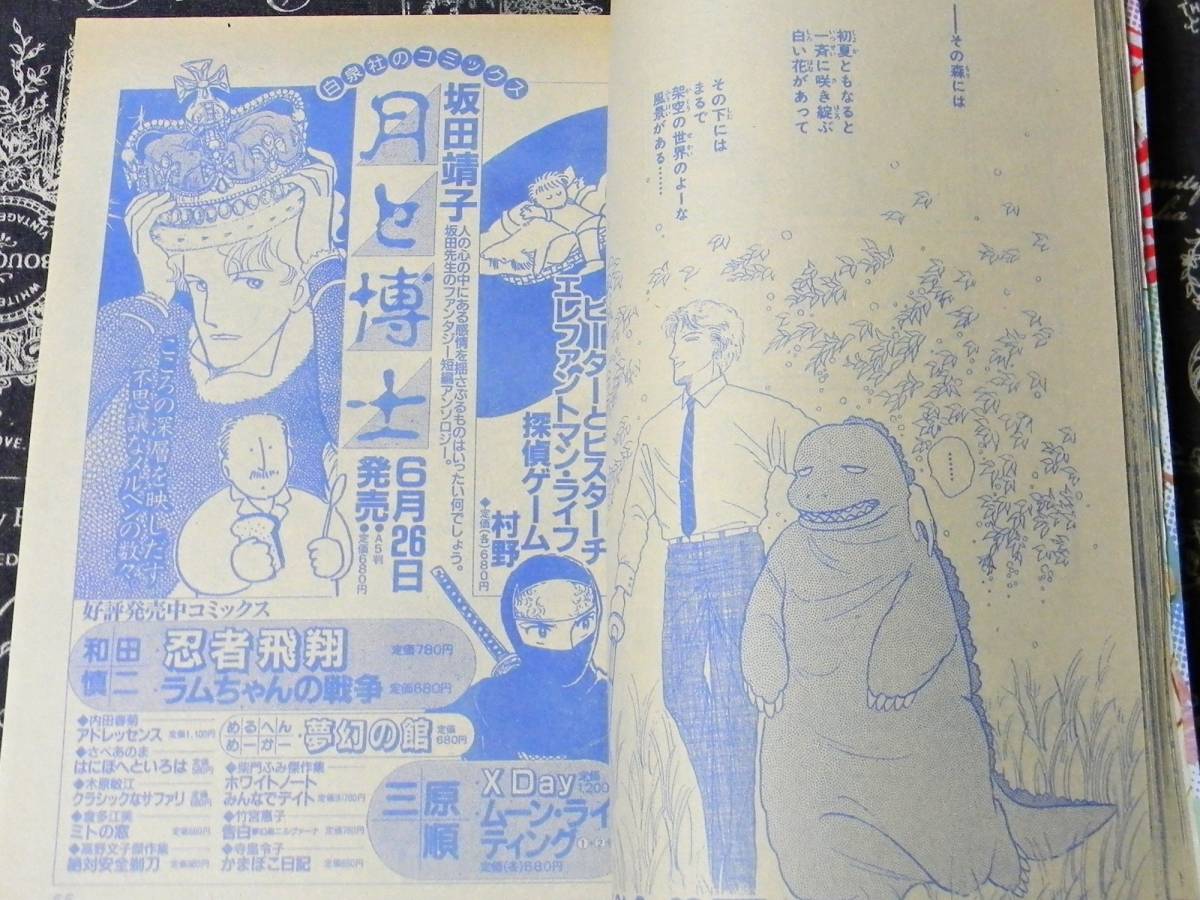 ――その森には
初夏ともなると
一斉に咲き綻ぶ
白い花があって
その下には
まるで
架空の世界のよーな
風景がある……
……
白泉社のコミックス
坂田靖子
月と博士
人の心の中にある感情を揺さぶるものはいったい何でしょう。
坂田先生のファンタジー短編アンソロジー。
6月26日
発売
●A5判
●定価680円
こころの深層を映しだす
不思議なメルヘンの数々
ピーターとピスターチ
エレファントマン・ライフ
探偵ゲーム
村野
◆定価(各)680円
好評発売中コミックス
和田慎二
忍者飛翔 定価780円
ラムちゃんの戦争 定価680円
◆内田春菊
アドレッセンス 定価1,100円
◆さべあのま
はにほへといろは
◆木原敏江
クラシックなサファリ
◆倉多江美
ミトの窓
◆高野文子傑作集
絶対安全剃刀
めるへんめーかー・夢幻の館 定価680円
◆柴門ふみ傑作集
ホワイトノート
みんなでデイト
◆竹宮惠子
告白
◆寺島令子
かまぼこ日記
三原順
X Day 定価1,200
ムーン・ライ
ティング ①・②
定価(各)680円